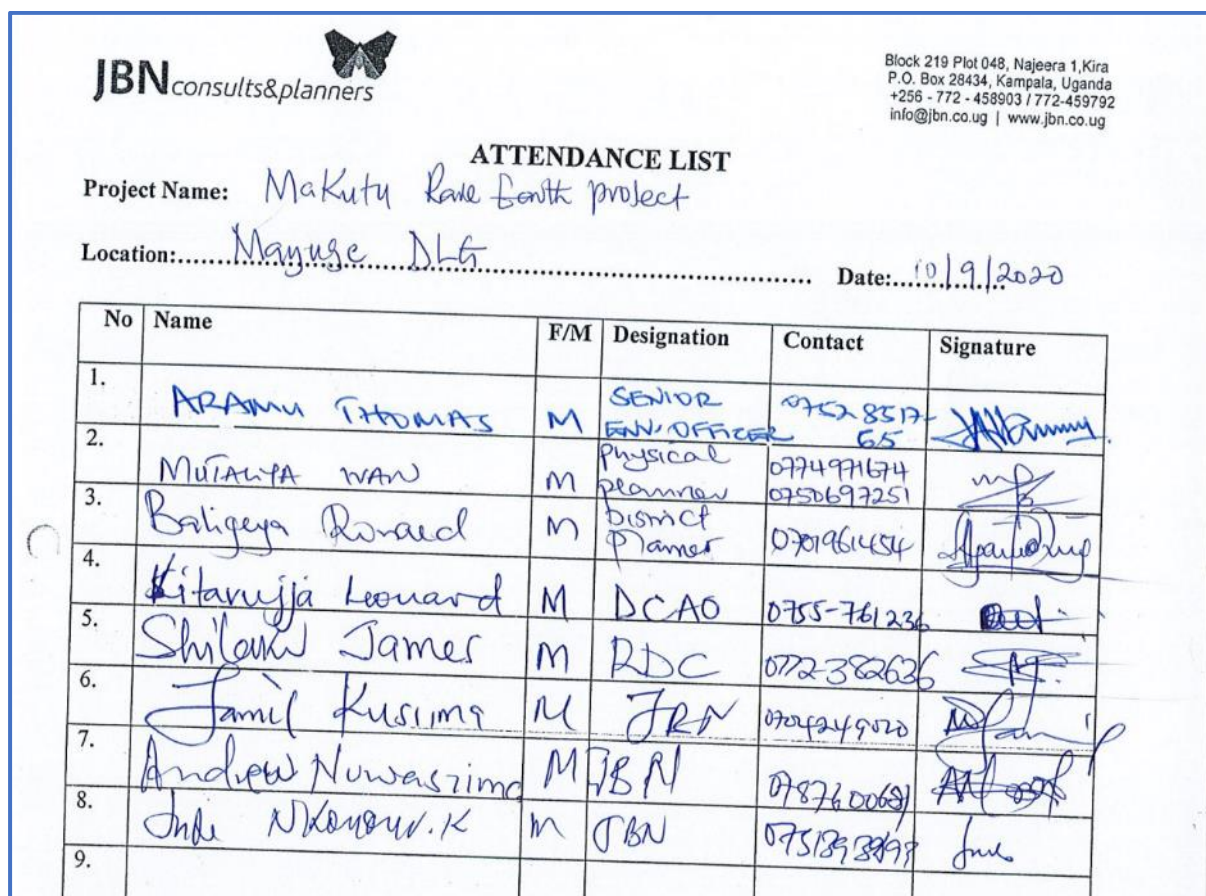 JBN consults&planners
Block 219 Plot 048, Najeera 1,Kira
P.O. Box 28434, Kampala, Uganda
+256 - 772 - 458903 / 772-459792
info@jbn.co.ug | www.jbn.co.ug
ATTENDANCE LIST
Project Name: Makutu Rare Earth project
Location:..... Mayuge DLG ..... Date:..... 10/9/2020
No Name F/M Designation Contact Signature
1. ARAMU THOMAS M SENIOR ENV. OFFICER 0752851765
2. MUTALYA IVAN M Physical planner 0774971674 0750697251
3. Baligeya Ronald M District Planner 0701961454
4. Kitavujja Leonard M DCAO 0755-761236
5. Shilaku James M RDC 0772-382636
6. Jamil Kusiima M JBN
7. Andrew Nuwasiima M JBN
8. M JBN
9.